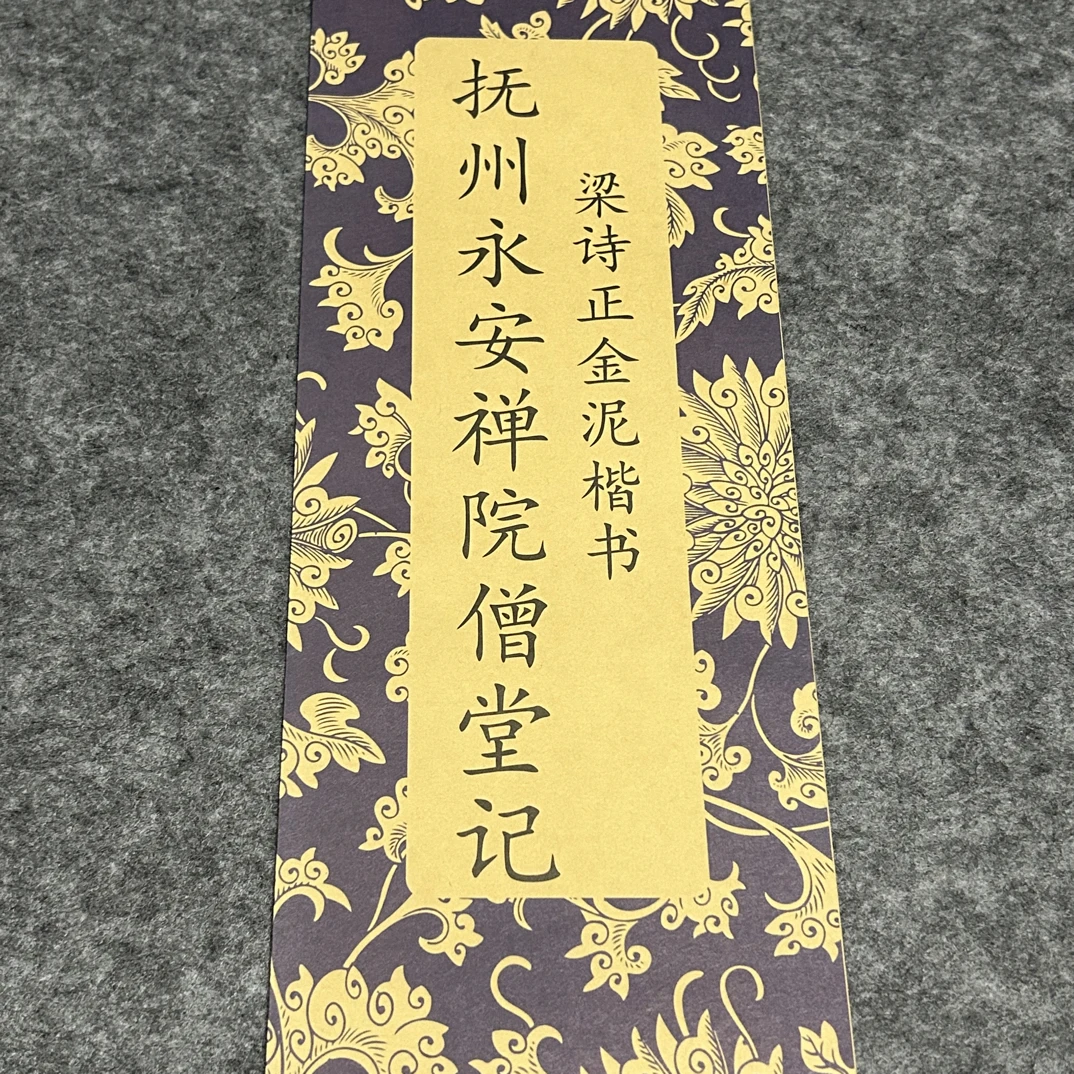 梁诗正金泥楷书
抚州永安禅院僧堂记